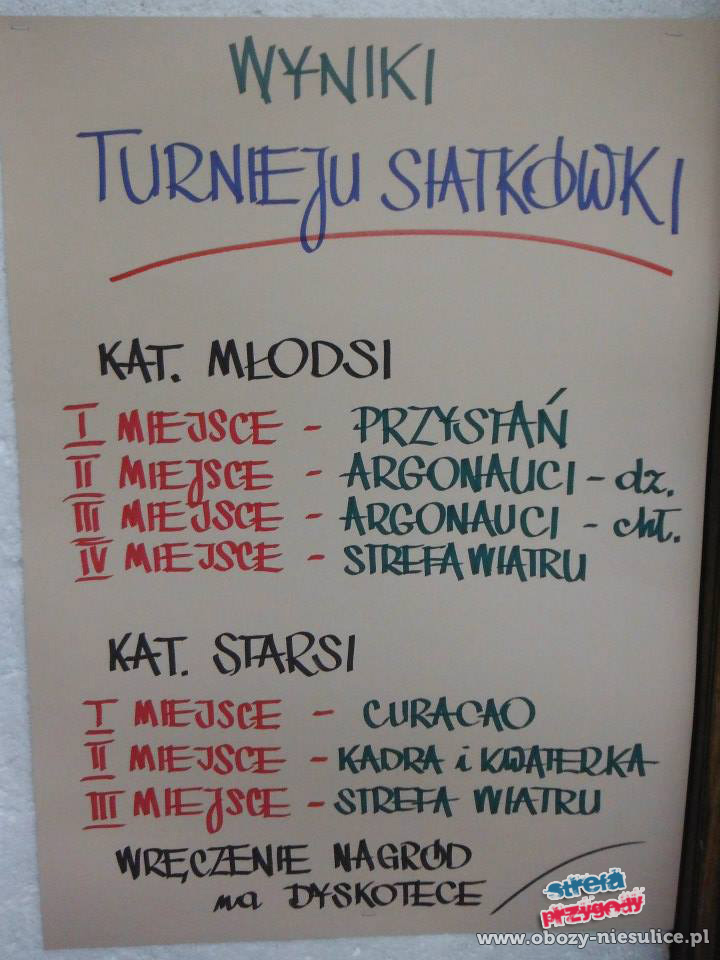 WYNIKI
TURNIEJU SIATKÓWKI
KAT. MŁODSI
I MIEJSCE - PRZYSTAŃ
II MIEJSCE - ARGONAUCI - dz.
III MIEJSCE - ARGONAUCI - chł.
IV MIEJSCE - STREFA WIATRU
KAT. STARSI
I MIEJSCE - CURACAO
II MIEJSCE - KADRA i KWATERKA
III MIEJSCE - STREFA WIATRU
WRĘCZENIE NAGRÓD
na DYSKOTECE
strefa
przygody
www.obozy-niesulice.pl